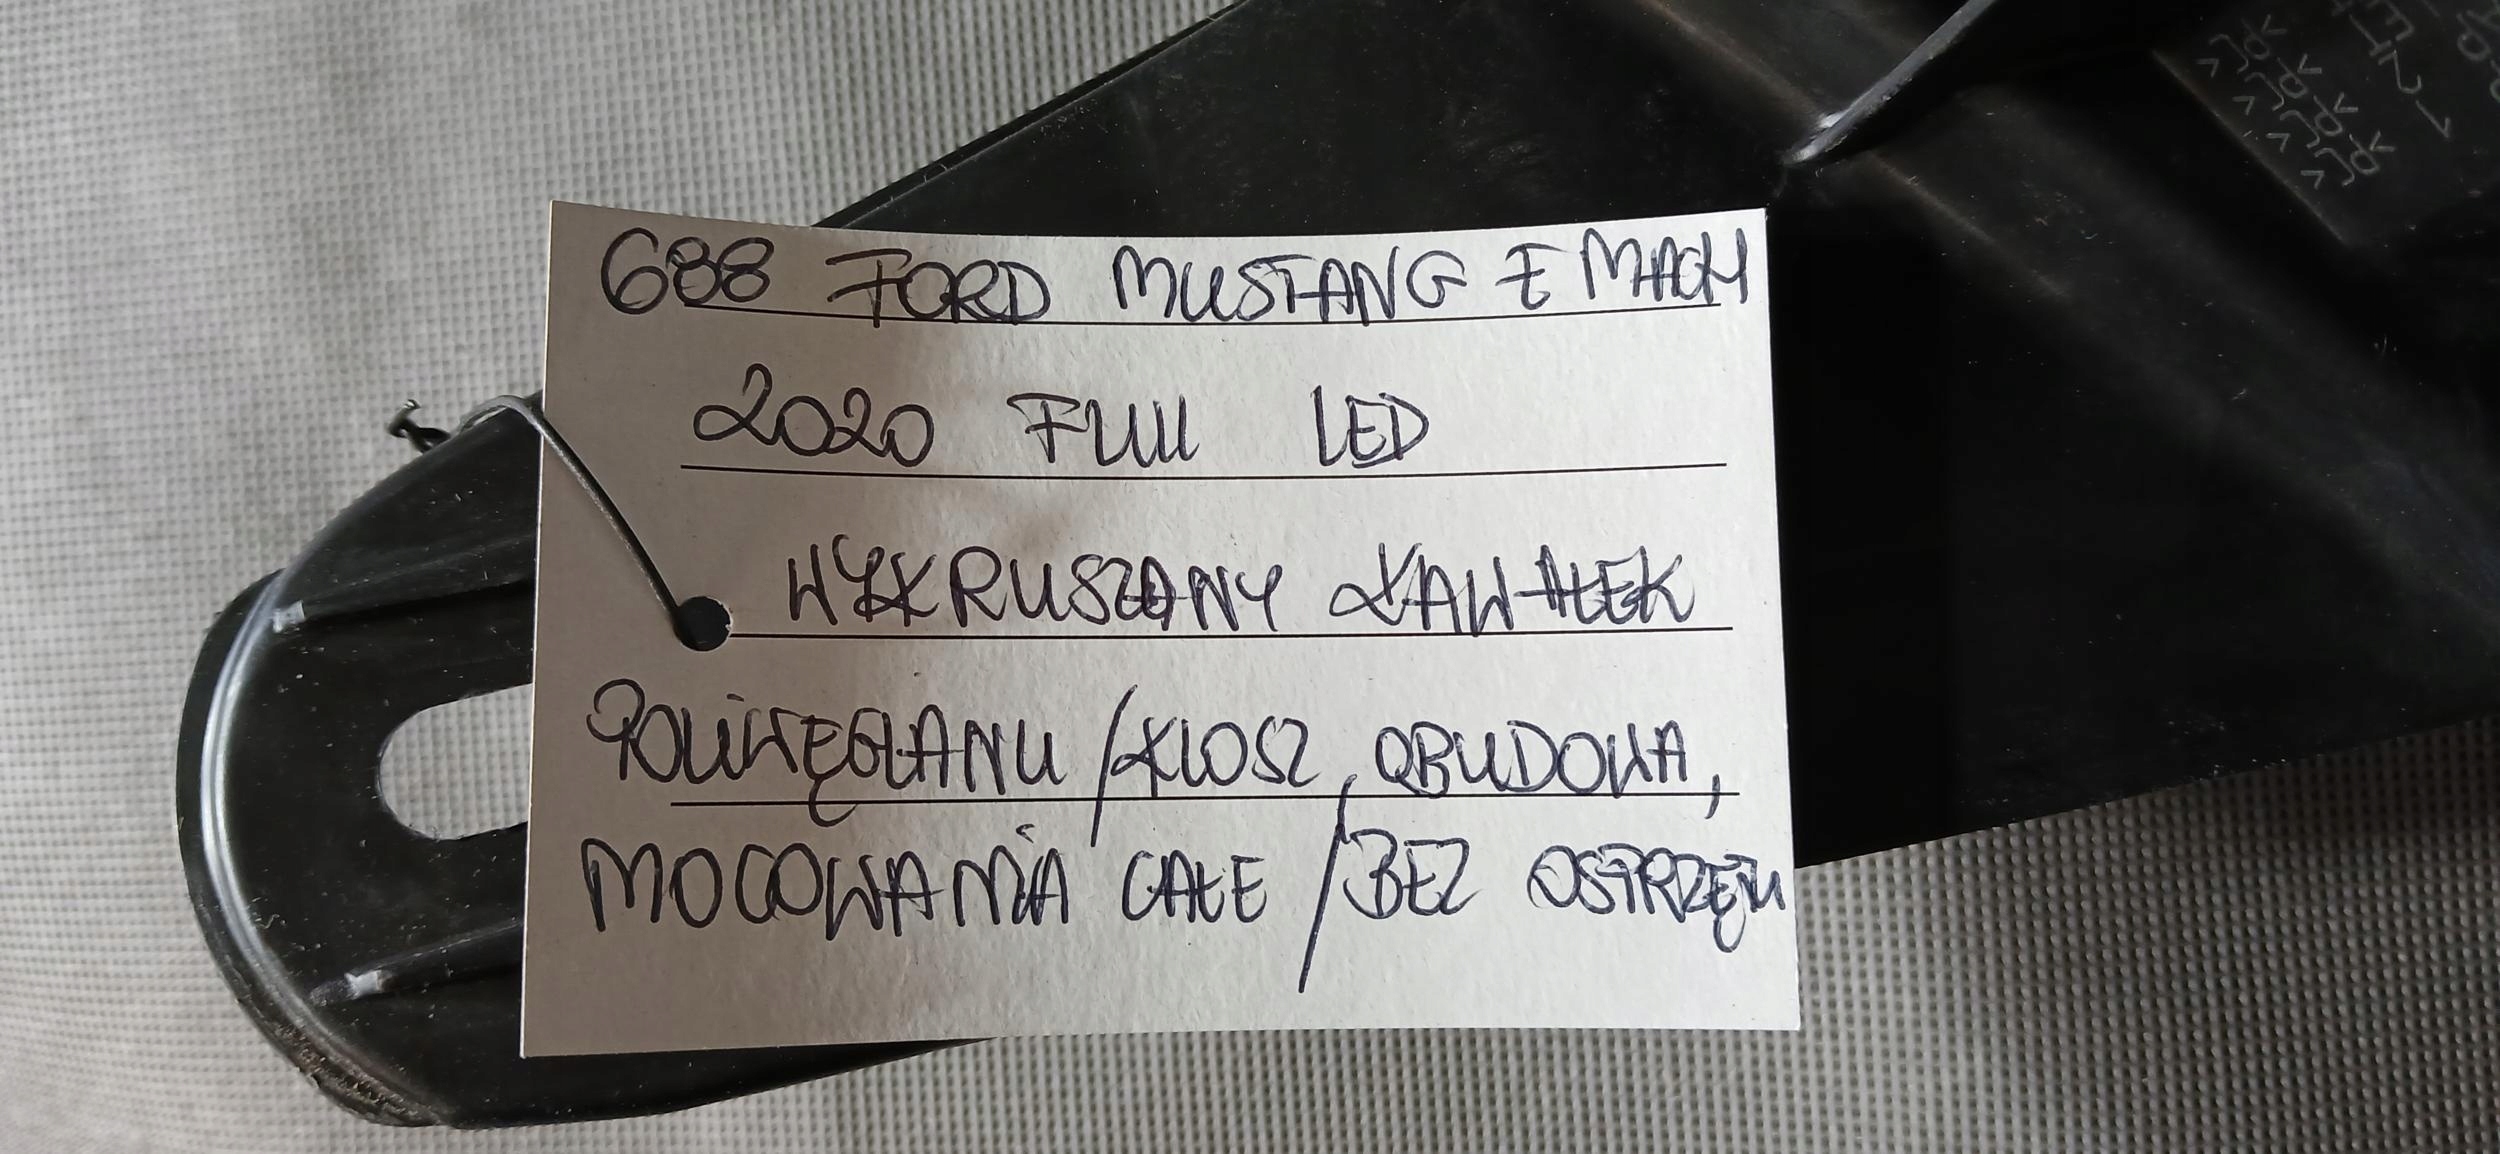 688 FORD MUSTANG E MACH
2020 FULL LED
WYKRUSZONY KAWAŁEK
POLIWĘGLANU /KLOSZ, OBUDOWA,
MOCOWANIA CAŁE /BEZ OSPRZĘTU
>PC<
>PC<
>PC<
>PC<